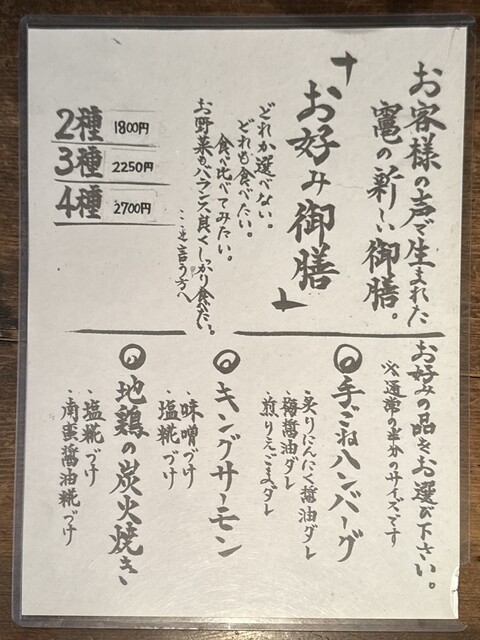 お客様の声で生まれた
竈の新しい御膳。
「お好み御膳」
どれか選べない。
どれも食べたい。
食べ比べてみたい。
お野菜もバランス良くしっかり食べたい。
…と言う方へ
2種 1800円
3種 2250円
4種 2700円
お好みの品をお選び下さい。
※通常の半分のサイズです
◎手ごねハンバーグ
・炙りにんにく醤油ダレ
・梅醤油ダレ
・煎りえごまダレ
◎キングサーモン
・味噌づけ
・塩糀づけ
◎地鶏の炭火焼き
・塩糀づけ
・南蛮醤油糀づけ